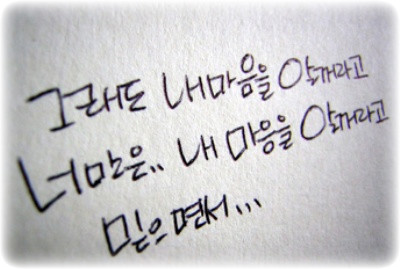 그래도 내마음을 알꺼라고
너만은.. 내 마음을 알꺼라고
믿으면서...